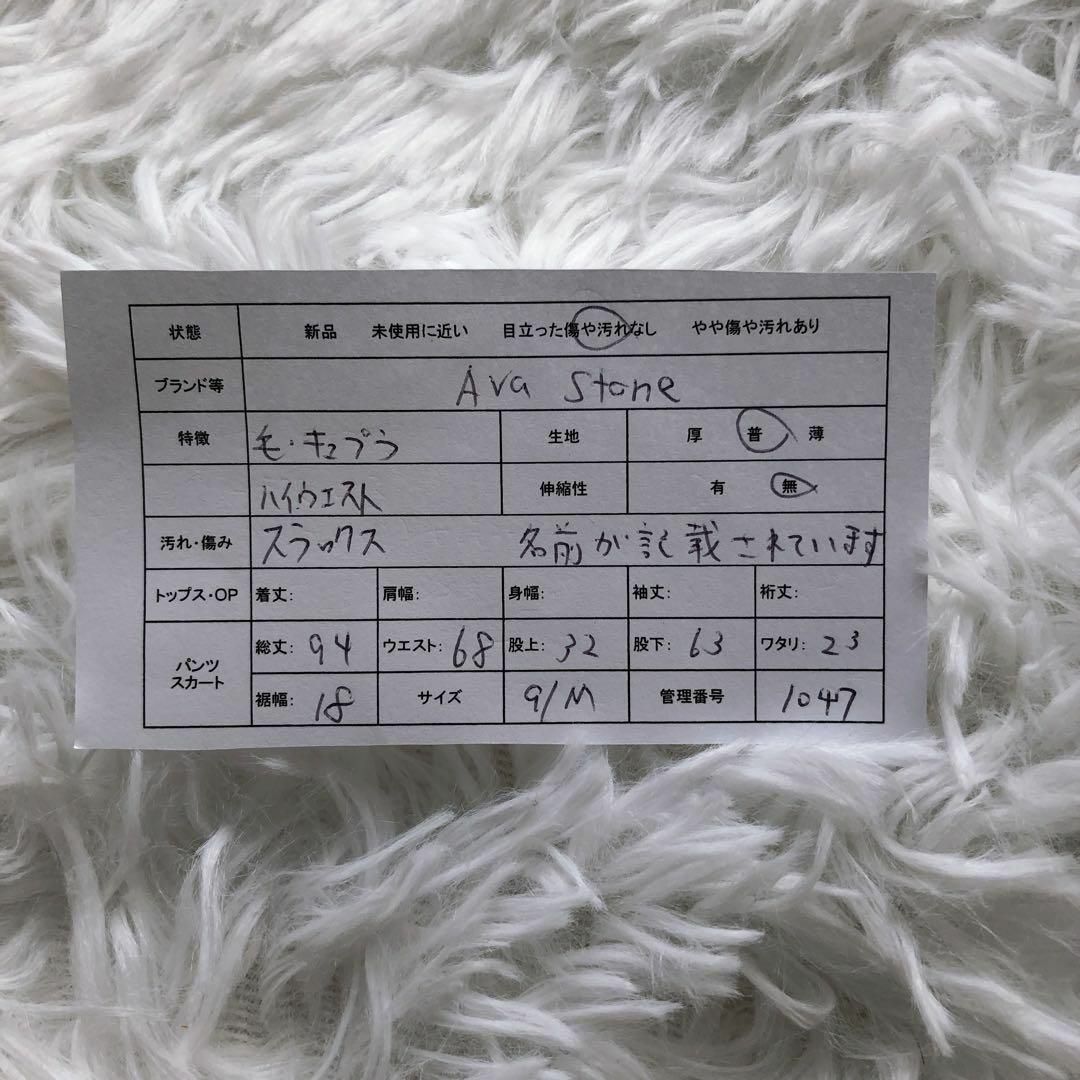 状態 新品 未使用に近い 目立った傷や汚れなし やや傷や汚れあり
ブランド等 Ava Stone
特徴 毛・キュプラ 生地 厚 普 薄
ハイウエスト 伸縮性 有 無
汚れ・傷み スラックス 名前が記載されています
トップス・OP 着丈: 肩幅: 身幅: 袖丈: 裄丈:
パンツ スカート 総丈: 94 ウエスト: 68 股上: 32 股下: 63 ワタリ: 23
裾幅: 18 サイズ 9/M 管理番号 1047